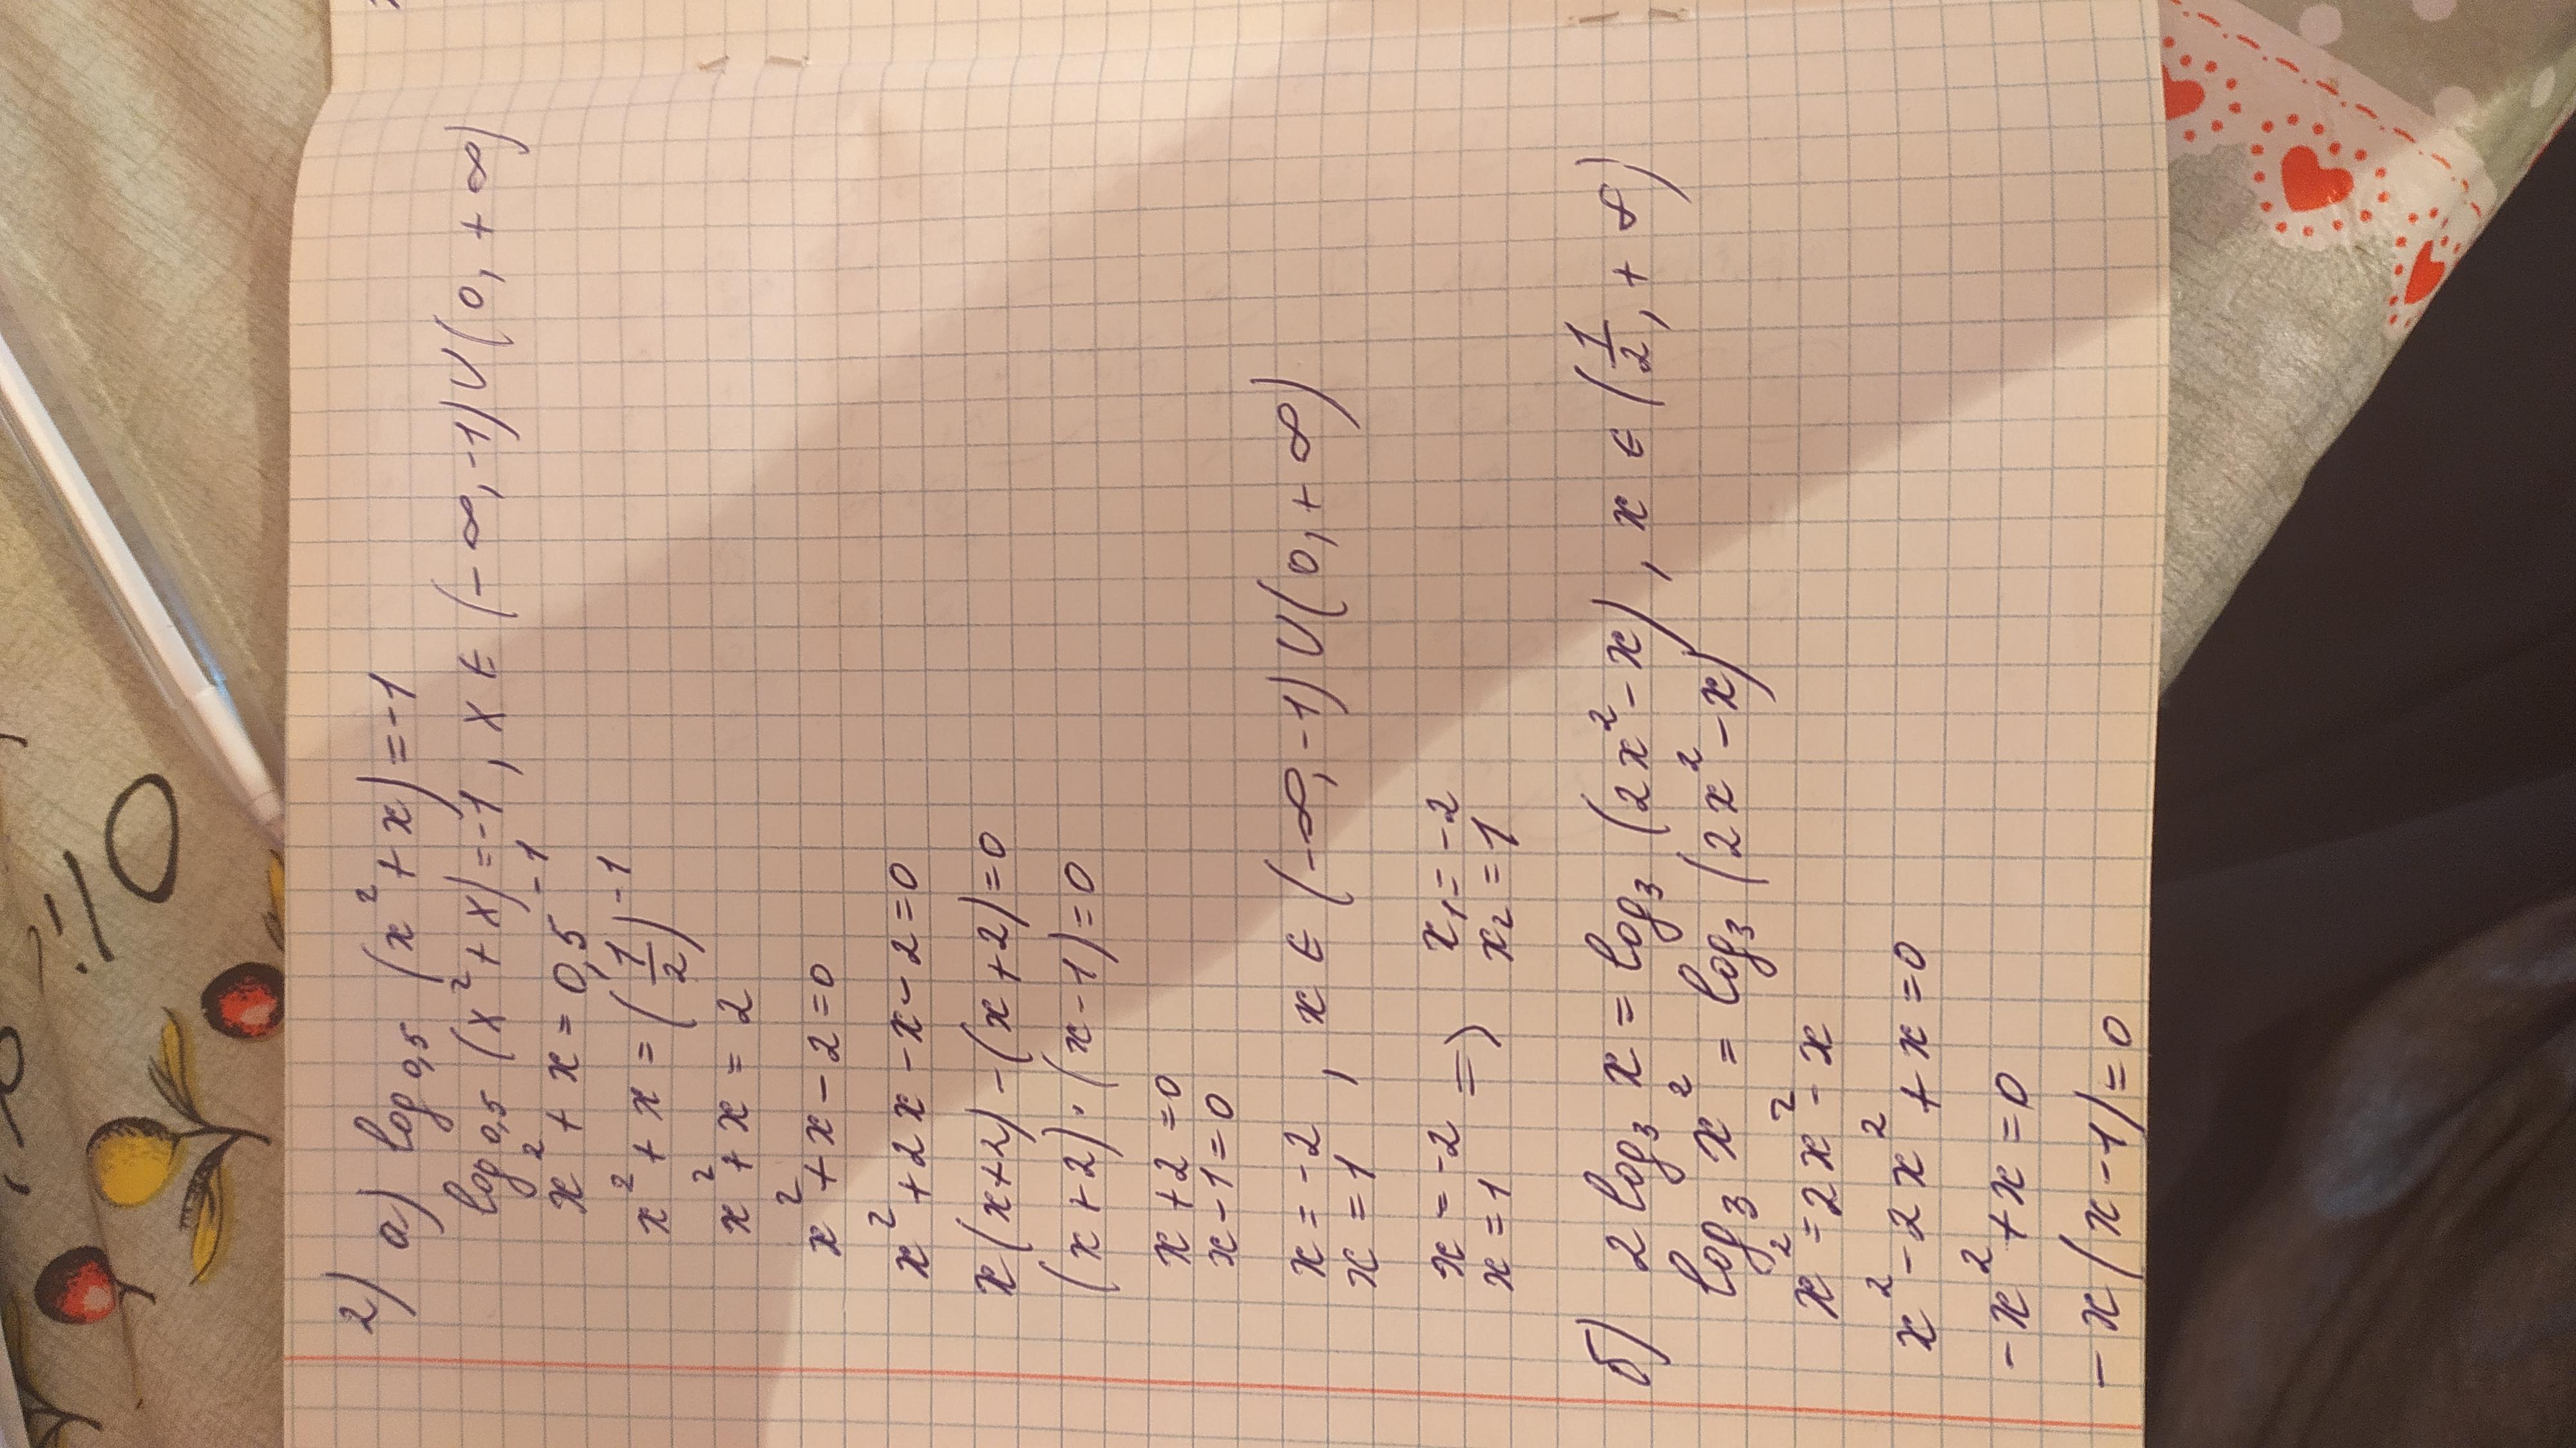 2) а) log₀,₅ (x² + x) = -1
log₀,₅ (x² + x) = -1, x ∈ (-∞, -1) ∪ (0, +∞)
x² + x = 0,5⁻¹
x² + x = (1/2)⁻¹
x² + x = 2
x² + x - 2 = 0
x² + 2x - x - 2 = 0
x(x+2) - (x+2) = 0
(x+2) · (x-1) = 0
x + 2 = 0
x - 1 = 0
x = -2
x = 1, x ∈ (-∞, -1) ∪ (0, +∞)
x = -2 x₁ = -2
x = 1 => x₂ = 1
б) 2 log₃ x = log₃ (2x² - x), x ∈ (1/2, +∞)
log₃ x² = log₃ (2x² - x)
x² = 2x² - x
x² - 2x² + x = 0
-x² + x = 0
-x(x-1) = 0